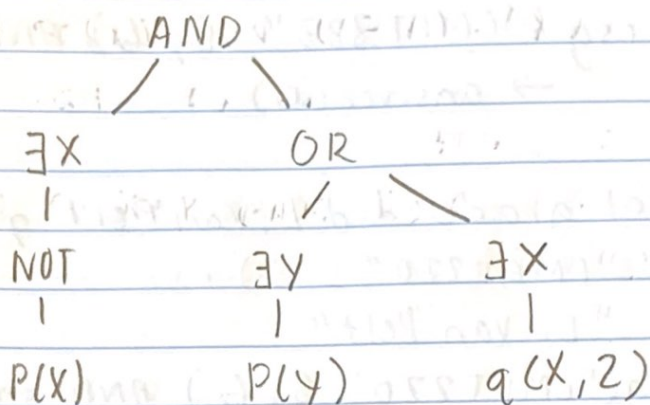 AND
∃X OR
NOT ∃Y ∃X
P(X) P(Y) q(X,2)